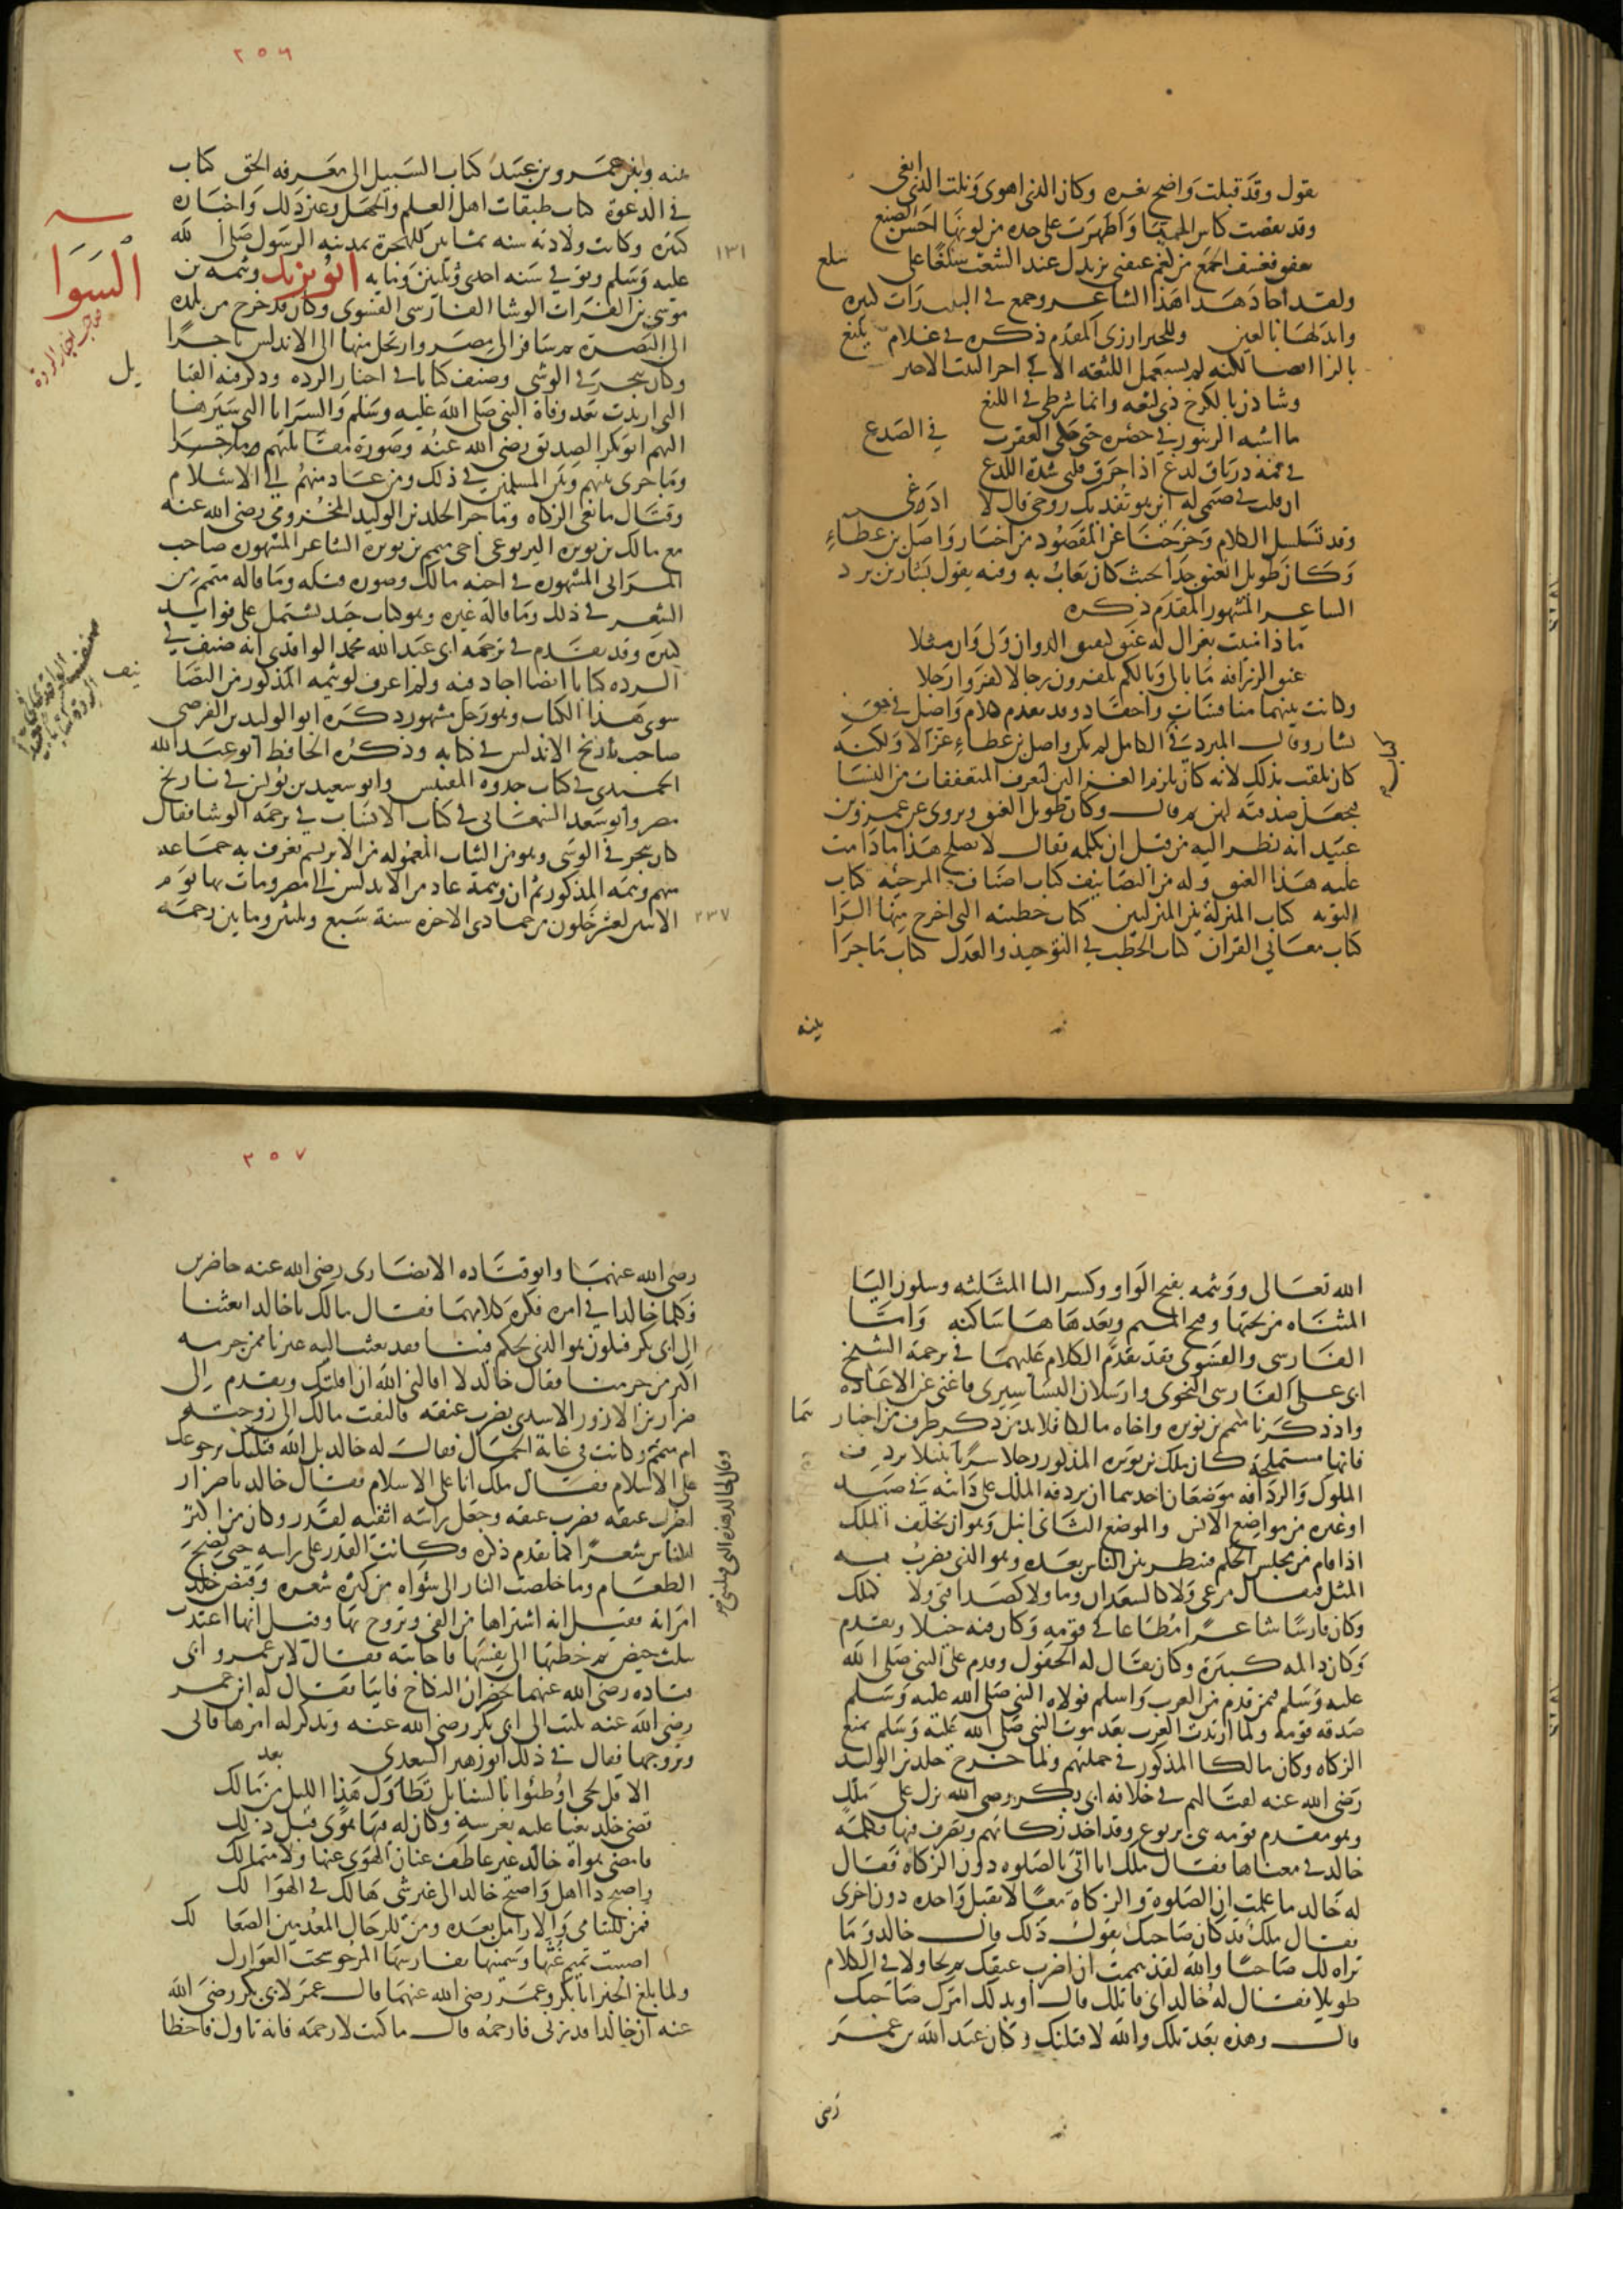 يقول وقد قبلت واضح ثغره وكان الذي اهوى ونلت الذي ابغي
وقد نفضت كاس الحميا واظهرت على خده من لونها احسن الصبغ
ولقد اجاد هذا الشاعر وجمع في البلدرات كثيره
وابدلها بالغين وللخبزارزي المقدم ذكره في غلام يلثغ
بالرا ايضا لكنه لم يستعمل اللثغه الا في اخر البيت الاخير
وشادن بالكرخ ذي لثغه وانما شرطي في اللثغ
ما اشبه الزنبور في خصره حتى حكى العقرب في الصدغ
في فمه درياق لدغ اذا احرق قلبي شدة اللدغ
ان قلت في ضمي له اين هو تفديك روحي قال لا ادغي
وقد تسلسل الكلام وخرجنا عن المقصود من اخبار واصل بن عطاء
وكان طويل العنق جدا بحيث كان يعاب به وفيه يقول بشار بن برد
الشاعر المشهور المقدم ذكره
ماذا منيت بغزال له عنق كنقنق الدو ان ولى وان مثلا
عنق الزرافه ما بالي وبالكم تكفرون رجالا كفروا رجلا
وكانت بينهما منافسات واحقاد وقد تقدم كلام واصل في حق
بشار وقال المبرد في الكامل لم يكن واصل بن عطاء غزالا ولكنه
كان يلقب بذلك لانه كان يلزم الغزالين ليعرف المتعففات من النسا
فيجعل صدقته لهن ثم قال وكان طويل العنق ويروى عن عمرو بن
عبيد انه نظر اليه من قبل ان يكلمه فقال لا يصلح هذا ما دامت
عليه هذا العنق وله من التصانيف كتاب اصناف المرجئه كتاب
التوبه كتاب المنزلة بين المنزلتين كتاب خطبته التي اخرج منها الرا
كتاب معاني القران كتاب الخطب في التوحيد والعدل كتاب ما جرا
بينه
٢٥٦
بينه وبين عمرو بن عبيد كتاب السبيل الى معرفه الحق كتاب
في الدعوة كتاب طبقات اهل العلم والجهل وغير ذلك واخباره
كثيره وكانت ولادته سنه ثمانين للهجرة بمدينه الرسول صلى الله
عليه وسلم وتوفي سنه احدى وثلثين ومايه ابو يزيد وثيمه بن
١٣١
موسى بن الفرات الوشا الفارسي الفسوي وكان قد خرج من بلده
الى البصرة ثم سافر الى مصر وارتحل منها الى الاندلس تاجرا
وكان يتجر في الوشي وصنف كتابا في اخبار الرده وذكر فيه القبايل
التي ارتدت بعد وفاة النبي صلى الله عليه وسلم والسرايا التي سيرها
اليهم ابو بكر الصديق رضي الله عنه وصورة مقاتلتهم وما جرا
وما جرى بينهم وبين المسلمين في ذلك ومن عاد منهم الى الاسلام
وقتال مانعي الزكاه وما جرا لخلد بن الوليد المخزومي رضي الله عنه
مع مالك بن نويره اليربوعي اخي متمم بن نويره الشاعر المشهور صاحب
المراثي المشهوره في اخيه مالك وصوره قتله وما قاله متمم من
الشعر في ذلك وما قاله غيره وهو كتاب جيد يشتمل على فوايد
كثيره وقد تقدم في ترجمه ابي عبد الله محمد الواقدي انه صنف في
الرده كتابا ايضا اجاد فيه ولم اعرف لوثيمه المذكور من التصانيف
سوى هذا الكتاب وهو رجل مشهور ذكره ابو الوليد بن الفرضي
صاحب تاريخ الاندلس في كتابه وذكره الحافظ ابو عبد الله
الحميدي في كتاب جذوه المقتبس وابو سعيد بن يونس في تاريخ
مصر وابو سعد السمعاني في كتاب الانساب في ترجمه الوشا فقال
كان يتجر في الوشي وهو من الثياب المعموله من الابريسم يعرف به جماعه
منهم وثيمه المذكور ثم ان وثيمة عاد من الاندلس الى مصر ومات بها يوم
الاثنين لعشر خلون من جمادى الاخره سنة سبع وثلثين وماتين رحمه
٢٣٧
الله تعالى ووثيمه بفتح الواو وكسر الثا المثلثه وسكون اليا
المثناه من تحتها وفتح الميم وبعدها ها ساكنه واما
الفارسي والفسوي فقد تقدم الكلام عليهما في ترجمة الشيخ
ابي علي الفارسي النحوي وارسلان البساسيري فاغنى عن الاعاده
واذ ذكرنا متمم بن نويره واخاه مالكا فلا بد من ذكر طرف من اخبارهما
فانها مستملحة كان ملك بن نويره المذكور رجلا سريا نبيلا يردف
الملوك والردافه موضعان احدهما ان يردفه الملك على دابته في صيد
او غيره من مواضع الانس والموضع الثاني انبل وهو ان يخلف الملك
اذا قام من مجلس الحكم فينظر بين الناس بعده وهو الذي يضرب به
المثل فيقال مرعى ولا كالسعدان وما ولا كصدا وفتى ولا كملك
وكان فارسا شاعرا مطاعا في قومه وكان فيه خيلا وتقدم
وكان ذا لمه كبيرة وكان يقال له الجفول وقدم على النبي صلى الله
عليه وسلم فيمن قدم من العرب واسلم فولاه النبي صلى الله عليه وسلم
صدقه قومه ولما ارتدت العرب بعد موت النبي صلى الله عليه وسلم بمنع
الزكاه وكان مالكا المذكور في جملتهم ولما خرج خلد بن الوليد
رضي الله عنه لقتالهم في خلافه ابي بكر رضي الله نزل على ملك
وهو مقدم قومه بني يربوع وقد اخذ زكاتهم وتصرف فيها فكلمه
خالد في معناها فقال ملك انا اتي بالصلوه دون الزكاه فقال
له خالد ما علمت ان الصلوة والزكاة معا لا تقبل واحده دون اخرى
فقال ملك قد كان صاحبك يقول ذلك قال خالد وما
تراه لك صاحبا والله لقد هممت ان اضرب عنقك ثم تحاولا في الكلام
طويلا فقال له خالد اني قاتلك قال او بذلك امرك صاحبك
قال وهذه بعد تلك والله لاقتلنك وكان عبد الله بن عمر
رضي
٢٥٧
رضي الله عنهما وابو قتاده الانصاري رضي الله عنه حاضرين
فكلما خالدا في امره فكره كلامهما فقال مالك يا خالد ابعثنا
الى ابي بكر فيكون هو الذي يحكم فينا فقد بعثت اليه غيرنا ممن جرمه
اكبر من جرمنا فقال خالد لا اقالني الله ان اقلتك وتقدم الى
ضرار بن الازور الاسدي بضرب عنقه فالتفت مالك الى زوجته
ام متمم وكانت في غاية الجمال فقال له خالد بل الله قتلك برجوعك
على الاسلام فقال ملك انا على الاسلام فقال خالد يا ضرار
اضرب عنقه فضرب عنقه وجعل راسه اثفيه لقدر وكان من اكثر
الناس شعرا كما تقدم ذكره وكانت القدر على راسه حتى نضج
الطعام وما خلصت النار الى شواه من كثرة شعره وقبض خالد
امراته فقيل انه اشتراها من الفي وتزوج بها وقيل انها اعتدت
بثلث حيض ثم خطبها الى نفسها فاجابته فقال لابن عمر وابي
قتاده رضي الله عنهما يحضران النكاح فابيا فقال له ابن عمر
رضي الله عنه نكتب الى ابي بكر رضي الله عنه ونذكر له امرها فابى
وتزوجها فقال في ذلك ابو زهير السعدي
الا قل لحي اوطئوا بالسنابك تطاول هذا الليل من بعد مالك
قضى خلد بغيا عليه بعرسه وكان له فيها هوى قبل ذلك
فامضى هواه خالد غير عاطف عنان الهوى عنها ولا متمالك
واصبح ذا اهل واصبح خالدا الى غير شي هالك في الهوالك
فمن لليتامى والارامل بعده ومن للرجال المعدمين الصعالك
اصيبت تميم غثها وسمينها بفارسها المرجو تحت الحوارك
ولما بلغ الخبر ابا بكر وعمر رضي الله عنهما قال عمر لابي بكر رضي الله
عنه ان خالدا قد زنى فارجمه قال ما كنت لارجمه فانه تاول فاخطا